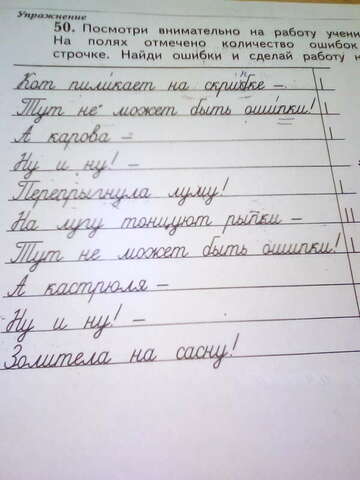 Упражнение
50. Посмотри внимательно на работу учени
На полях отмечено количество ошибок
строчке. Найди ошибки и сделай работу н
Кот пиликает на скрибке –
Тут не может быть ошипки!
А карова –
Ну и ну! –
Перепрыгнула луму!
На лугу тонцуют рыпки –
Тут не может быть ошипки!
А кастрюля –
Ну и ну! –
Золитела на сасну!